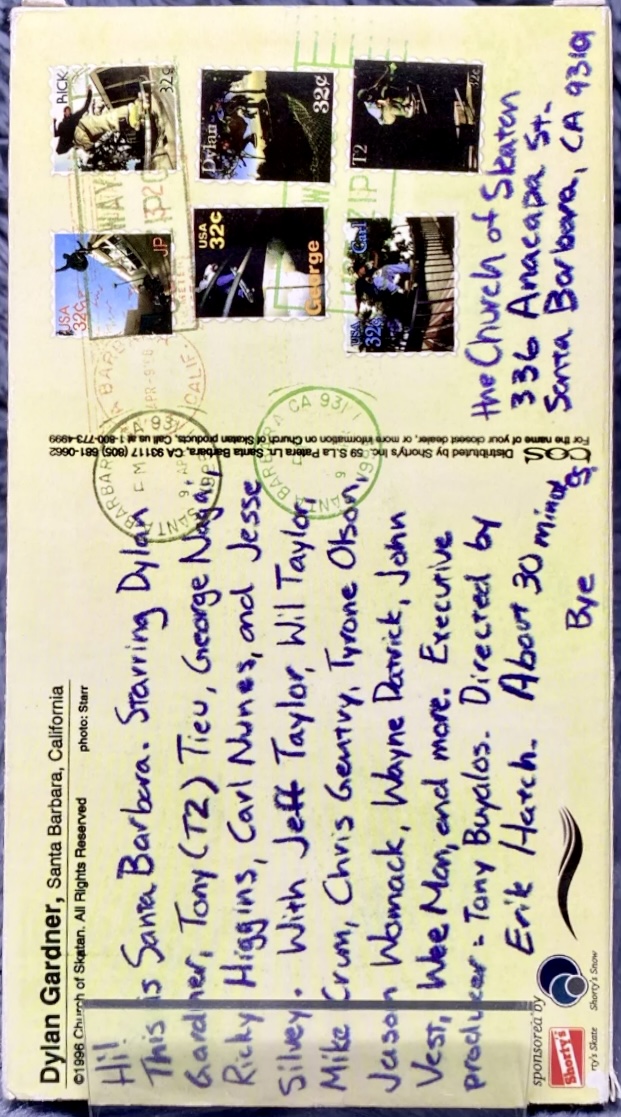 Dylan Gardner, Santa Barbara, California
©1996 Church of Skatan. All Rights Reserved photo: Starr
Hi!
This is Santa Barbara. Starring Dylan
Gardner, Tony (T2) Tieu, George Nagai,
Ricky Higgins, Carl Nunes, and Jesse
Silvey. With Jeff Taylor, Wil Taylor,
Mike Crum, Chris Gentry, Tyrone Olson,
Jason Womack, Wayne Patrick, John
Vest, Wee Man, and more. Executive
producer - Tony Buyalos. Directed by
Erik Hatch. About 30 minutes
Bye
sponsored by
Shorty's
ry's Skate Shorty's Snow
COS
Distributed by Shorty's Inc. 59 S.La Patera Ln. Santa Barbara, CA 93117 (805) 681-0662
For the name of your closest dealer, or more information on Church of Skatan products, Call us at 1-800-773-4999
RICK 32¢
Dylan 32¢
T2
USA 32¢ JP
USA 32¢ George
USA 32¢ Carl
SANTA BARBARA CA 931
SANTA BARBARA CA 931
CALIF.
the Church of Skatan
336 Anacapa St.
Santa Barbara, CA 93101